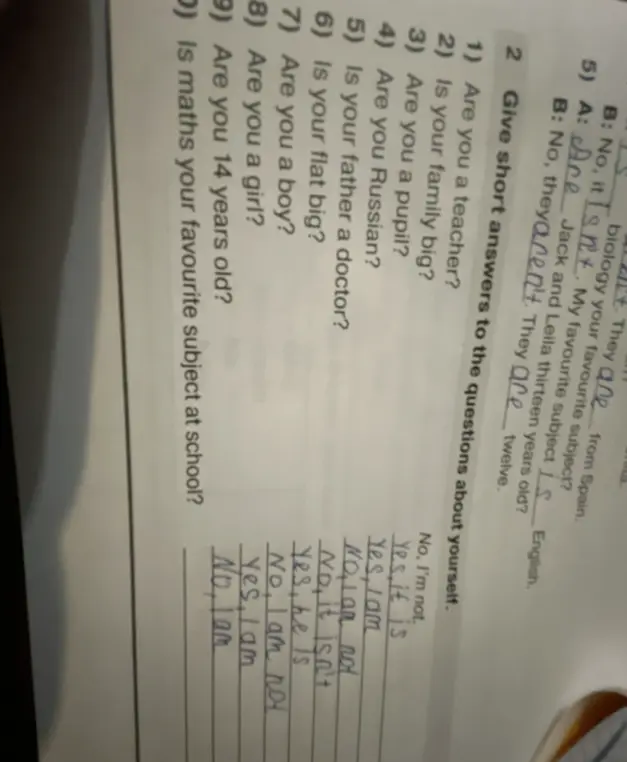 aren't. They are from Spain.
Is biology your favourite subject?
B: No, it Isn't. My favourite subject Is English.
5) A: Are Jack and Leila thirteen years old?
B: No, they aren't. They are twelve.
2 Give short answers to the questions about yourself.
1) Are you a teacher? No, I'm not.
2) Is your family big? Yes, it is
3) Are you a pupil? Yes, I am
4) Are you Russian? No, I am not
5) Is your father a doctor? No, it isn't
6) Is your flat big? Yes, he is
7) Are you a boy? No, I am not
8) Are you a girl? Yes, I am
9) Are you 14 years old? No, I am
0) Is maths your favourite subject at school?